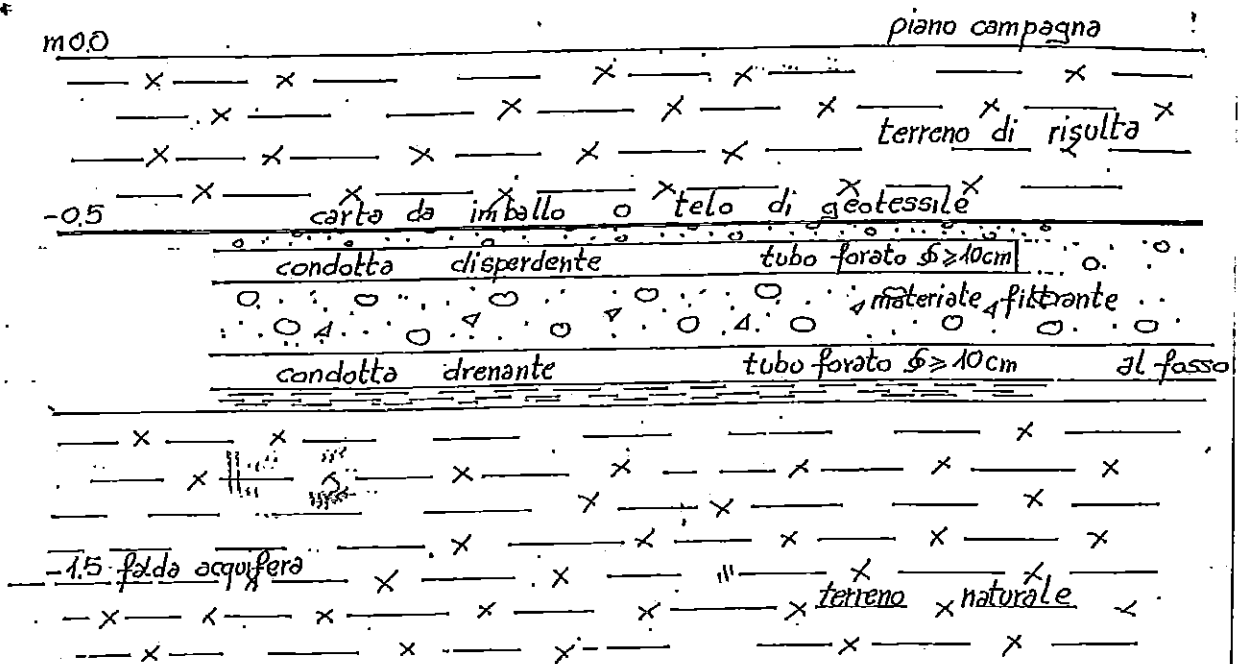 piano campagna
m 0.0
terreno di risulta
-0.5
carta da imballo o telo di geotessile
condotta disperdente tubo forato ⌀≥10cm
materiate filtrante
condotta drenante tubo forato ⌀≥10cm al fosso
-1.5 falda acquifera
terreno naturale